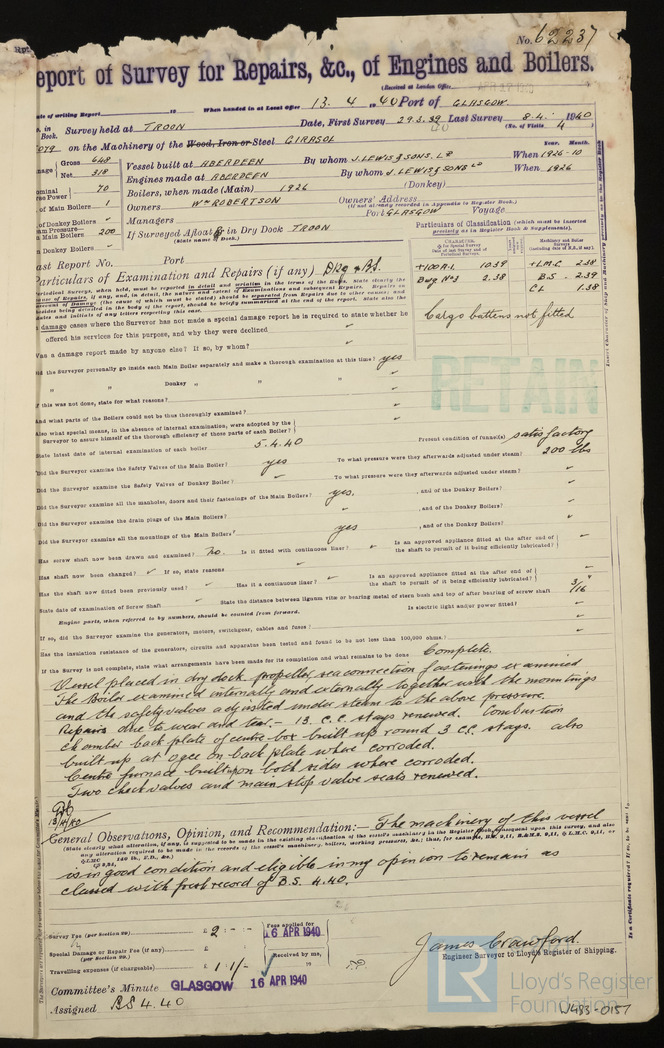 No. 62237
Report of Survey for Repairs, &c., of Engines and Boilers.
(Received at London Office
Date of writing Report 19 When handed in at Local Office 13. 4 1940 Port of GLASGOW
No. in Book. Survey held at TROON Date, First Survey 29.3.39 Last Survey 8-4. 1940
40 (No. of Visits 4
on the Machinery of the Wood, Iron or Steel GIRASOL
Gross 648 Vessel built at ABERDEEN By whom J. LEWIS & SONS. Ld When 1926-10
Net 318 Engines made at ABERDEEN By whom J. LEWIS & SONS Ld When 1926
70 Boilers, when made (Main) 1926 (Donkey)
of Main Boilers 1 Owners Wm ROBERTSON Owners' Address
(If not already recorded in Appendix to Register Book.)
of Donkey Boilers Managers Port GLASGOW Voyage
Main Boilers 200 If Surveyed Afloat or in Dry Dock TROON
(State name of Dock.)
Donkey Boilers
Last Report No. Port
Particulars of Examination and Repairs (if any) Dkg & B.S.
Particulars of Classification (which must be inserted precisely as in Register Book & Supplements).
+100 A.1. 10.38 +LMC 2.38
Bwg No3 2.38 B.S. 2.39
CL 1.38
Cargo battens not fitted
RETAIN
damage cases where the Surveyor has not made a special damage report he is required to state whether he
offered his services for this purpose, and why they were declined
Was a damage report made by anyone else? If so, by whom?
Did the Surveyor personally go inside each Main Boiler separately and make a thorough examination at this time? yes
" " Donkey " " "
If this was not done, state for what reasons?
And what parts of the Boilers could not be thoroughly examined?
Also what special means, in the absence of internal examination, were adopted by the
Surveyor to assure himself of the thorough efficiency of those parts of each Boiler?
State latest date of internal examination of each boiler 5.4.40 Present condition of funnel(s) satisfactory
Did the Surveyor examine the Safety Valves of the Main Boiler? yes To what pressure were they afterwards adjusted under steam? 200 lbs
Did the Surveyor examine the Safety Valves of Donkey Boiler? To what pressure were they afterwards adjusted under steam?
Did the Surveyor examine all the manholes, doors and their fastenings of the Main Boilers? yes. , and of the Donkey Boilers?
Did the Surveyor examine the drain plugs of the Main Boilers? , and of the Donkey Boilers?
Did the Surveyor examine all the mountings of the Main Boilers? yes , and of the Donkey Boilers?
Has screw shaft now been drawn and examined? No. Is it fitted with continuous liner? Is an approved appliance fitted at the after end of the shaft to permit of it being efficiently lubricated?
Has shaft now been changed? If so, state reasons
Has the shaft now fitted been previously used? Has it a continuous liner? Is an approved appliance fitted at the after end of the shaft to permit of it being efficiently lubricated?
State date of examination of Screw Shaft State the distance between lignum vitæ or bearing metal of stern bush and top of after bearing of screw shaft 3/16"
Engine parts, when referred to by numbers, should be counted from forward. Is electric light and/or power fitted?
If so, did the Surveyor examine the generators, motors, switchgear, cables and fuses?
Has the insulation resistance of the generators, circuits and apparatus been tested and found to be not less than 100,000 ohms?
If the Survey is not complete, state what arrangements have been made for its completion and what remains to be done Complete.
Vessel placed in dry dock, propeller, sea connection fastenings examined
The Boiler examined internally and externally together with the mountings
and the safety valves adjusted under steam to the above pressure.
Repairs due to wear and tear:- 13. C.C. stays renewed. Combustion
chamber back plate of centre box built up round 3 C.S. stays. also
built up at ogee on back plate where corroded.
Centre furnace built upon both sides where corroded.
Two check valves and main stop valve seats renewed.
General Observations, Opinion, and Recommendation:— The machinery of this vessel
is in good condition and eligible in my opinion to remain as
classed with fresh record of B.S. 4.40.
Survey Fee (per Section 29) £ 2 : - : - Fees applied for 16 APR 1940
Special Damage or Repair Fee (if any) (per Section 29.) £
Received by me,
Travelling expenses (if chargeable) £ 1 1/-
James Crawford.
Engineer Surveyor to Lloyd's Register of Shipping.
Committee's Minute GLASGOW 16 APR 1940
Assigned BS 4.40
LR Lloyd's Register Foundation
W483-0157